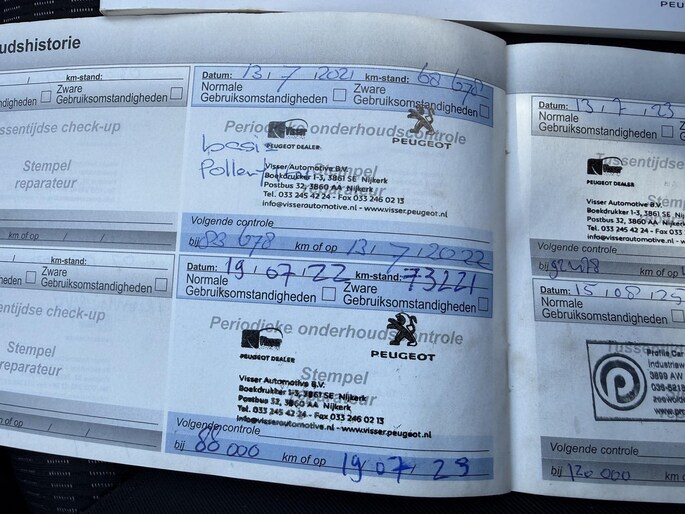 PEU
udshistorie
/ km-standː
Zware
standigheden Gebruiksomstandigheden
ssentijdse check-up
Stempel
reparateur
km of op / /
km-stand:
Zware
standigheden Gebruiksomstandigheden
ssentijdse check-up
Stempel
reparateur
km of op / /
Datum: 13, 7, 2021 km-stand: 68 678
Normale Zware
Gebruiksomstandigheden Gebruiksomstandigheden
Periodieke onderhoudscontrole
Visser
PEUGEOT DEALER PEUGEOT
Stempel
Visser Automotive B.V.
Boekdrukker 1-3, 3861 SE Nijkerk
Postbus 32, 3860 AA Nijkerk
Tel. 033 245 42 24 - Fax 033 246 02 13
info@visserautomotive.nl - www.visser.peugeot.nl
Volgende controle
bij 83 678 km of op 13, 7, 2022
Datum: 19, 07, 22 km-stand: 73221
Normale Zware
Gebruiksomstandigheden Gebruiksomstandigheden
Periodieke onderhoudscontrole
Visser
PEUGEOT DEALER PEUGEOT
Stempel
reparateur
Visser Automotive B.V.
Boekdrukker 1-3, 3861 SE Nijkerk
Postbus 32, 3860 AA Nijkerk
Tel. 033 245 42 24 - Fax 033 246 02 13
info@visserautomotive.nl - www.visser.peugeot.nl
Volgende controle
bij 88 000 km of op 19 07 23
Datum: 13, 7, 23
Normale
Gebruiksomstandigheden
Tussentijdse
PEUGEOT DEALER
Visser Automotive B.V.
Boekdrukker 1-3, 3861 SE
Postbus 32, 3860 AA Nijkerk
Tel. 033 245 42 24 - Fax
info@visserautomotive.nl
Volgende controle
bij km of op
Datum: 15, 08, 25
Normale
Gebruiksomstandigheden
Tussentijdse
Profile Car
Industriew
3899 AW
Volgende controle
bij 120 000 km of op